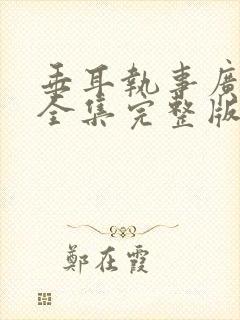 垂耳執事廣
全集完整版
鄭在霞